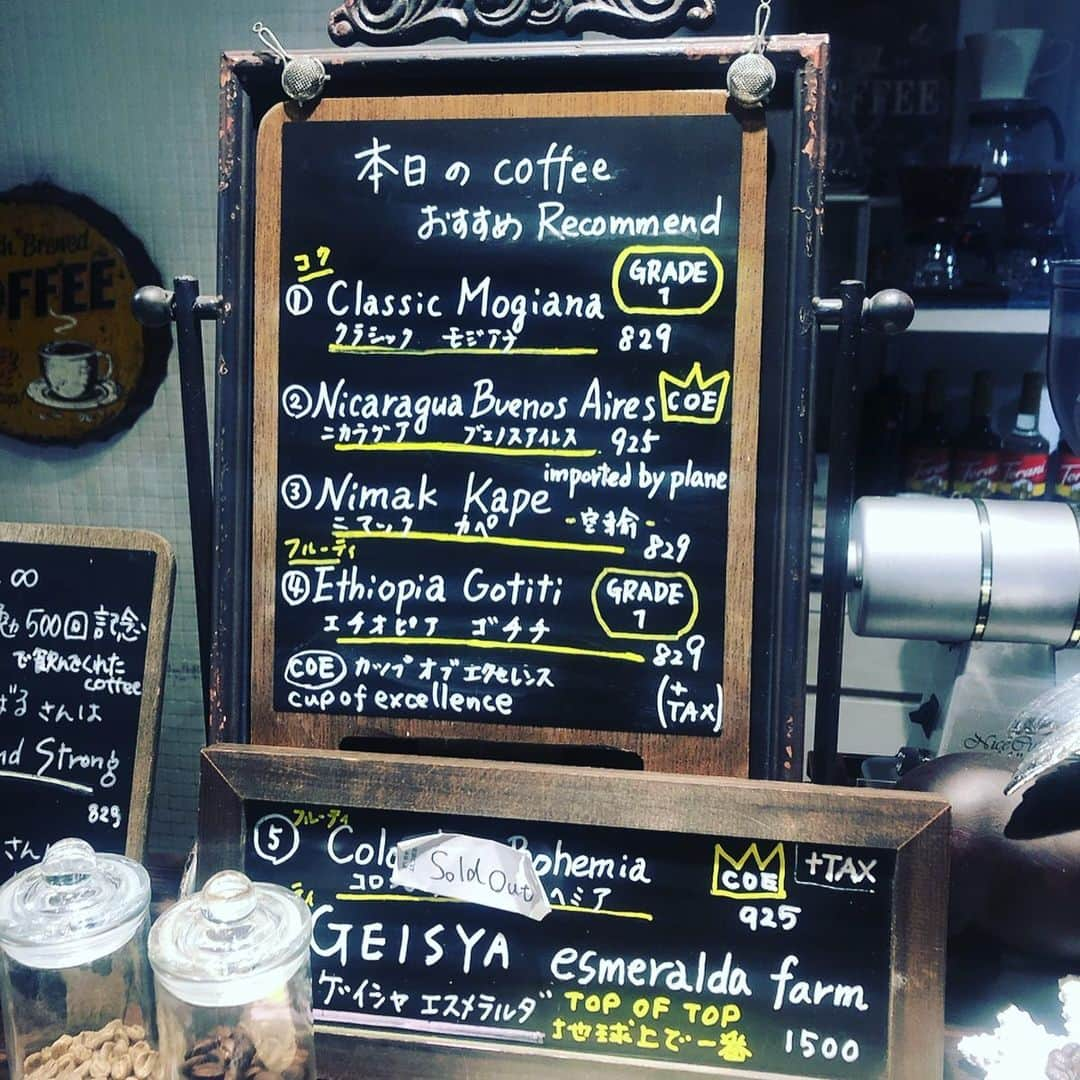 本日の coffee
おすすめ Recommend
コク
① Classic Mogiana
GRADE
1
クラシック モジアナ 829
② Nicaragua Buenos Aires
COE
ニカラグア ブエノスアイレス 925
imported by plane
③ Nimak Kape
ニマック カペ -空輸-
829
フルーティ
④ Ethiopia Gotiti
GRADE
1
エチオピア ゴチチ
829
COE カップ オブ エクセレンス
cup of excellence
(+
TAX)
⑤ フルーティ
Bohemia
Sold Out
COE
+TAX
925
GEISYA esmeralda farm
ゲイシャ エスメラルダ
TOP OF TOP
地球上で一番
1500
∞
500回記念
で飲んでくれた
coffee
さんは
Strong
829
さん
Brewed
COFFEE
Torani
Torani
Torani